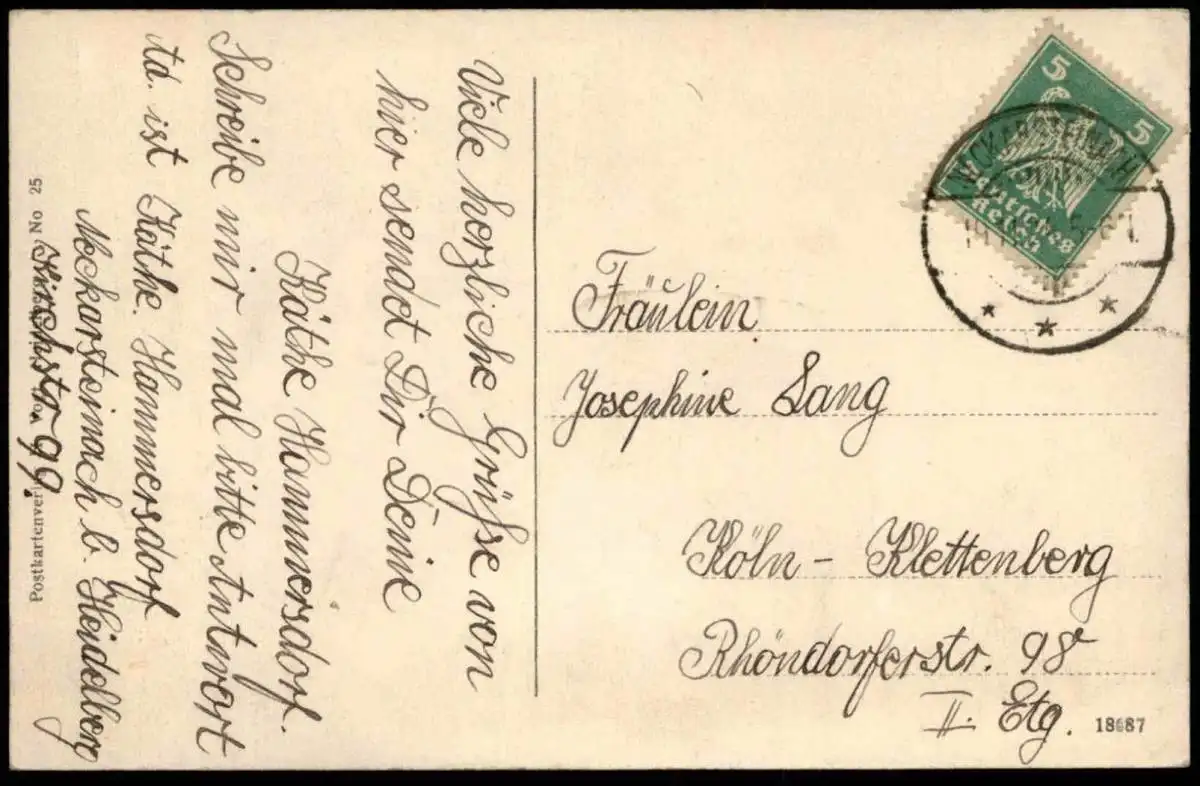 Viele herzliche Grüße von
hier sendet Dir Deine
Käthe Hammersdorf.
Schreibe mir mal bitte Antwort
Ad. ist Käthe. Hammersdorf
Neckarsteinach b. Heidelberg
Kirchstr. 99.
Postkartenverl
No 25
5
5
Deutsches
Reich
NECKARSTEINACH
Fräulein
Josephine Lang
Köln - Klettenberg
Rhöndorferstr. 98
II. Etg.
18687